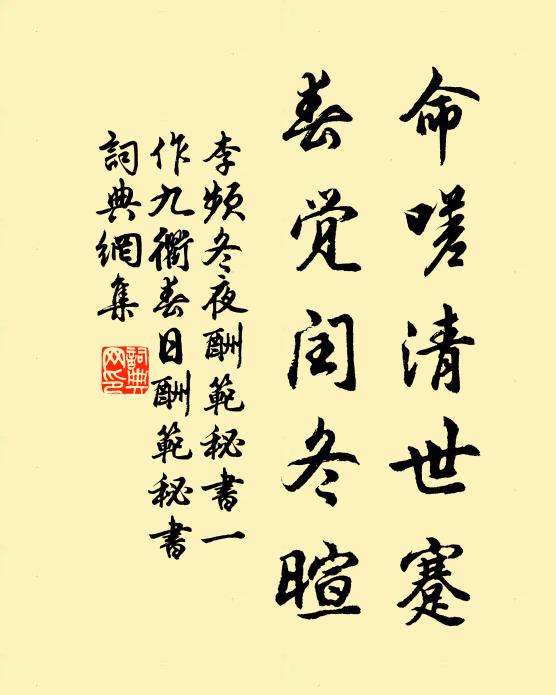 命嗟清世蹇
春觉闰冬暄
李频冬夜酬範秘書一
作九衢春日酬範秘書
詞典網集
詞典
网印